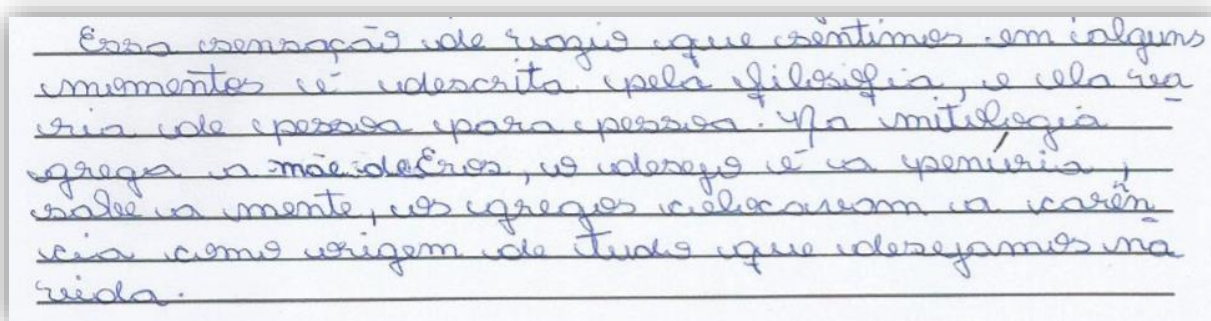 Essa sensação de vazio que sentimos em alguns
momentos é descrita pela filosofia, e ela va
ria de pessoa para pessoa. Na mitologia
grega a mãe de Eros, o desejo é a penúria,
sobre a mente, os gregos colocavam a carên
cia como origem de tudo que desejamos na
vida.